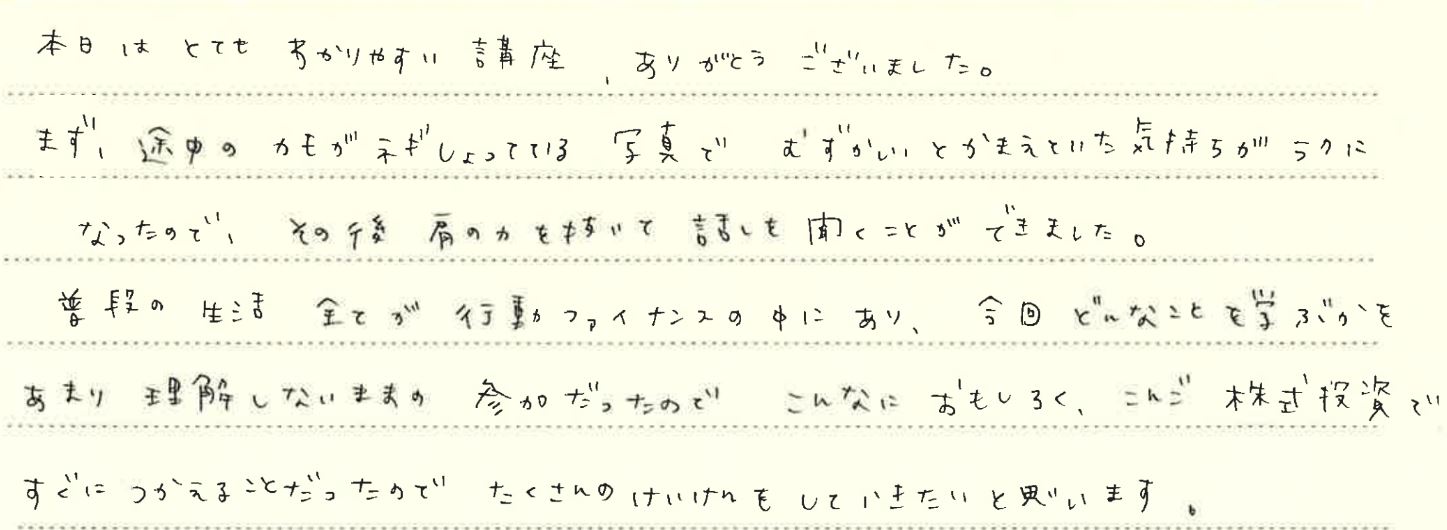 本日は とても わかりやすい 講座、ありがとうございました。
まず、途中の カモが ネギしょってている 写真で むずかしいとかまえていた気持ちがラクに
なったので、その後 肩の力を抜いて 話しを聞くことが できました。
普段の 生活 全てが 行動ファイナンスの中に あり、今回 どんなことを学ぶかを
あまり 理解しないままの 参加だったので こんなに おもしろく、こんご 株式投資で
すぐに つかえることだったので たくさんの けいけんを していきたいと思います。